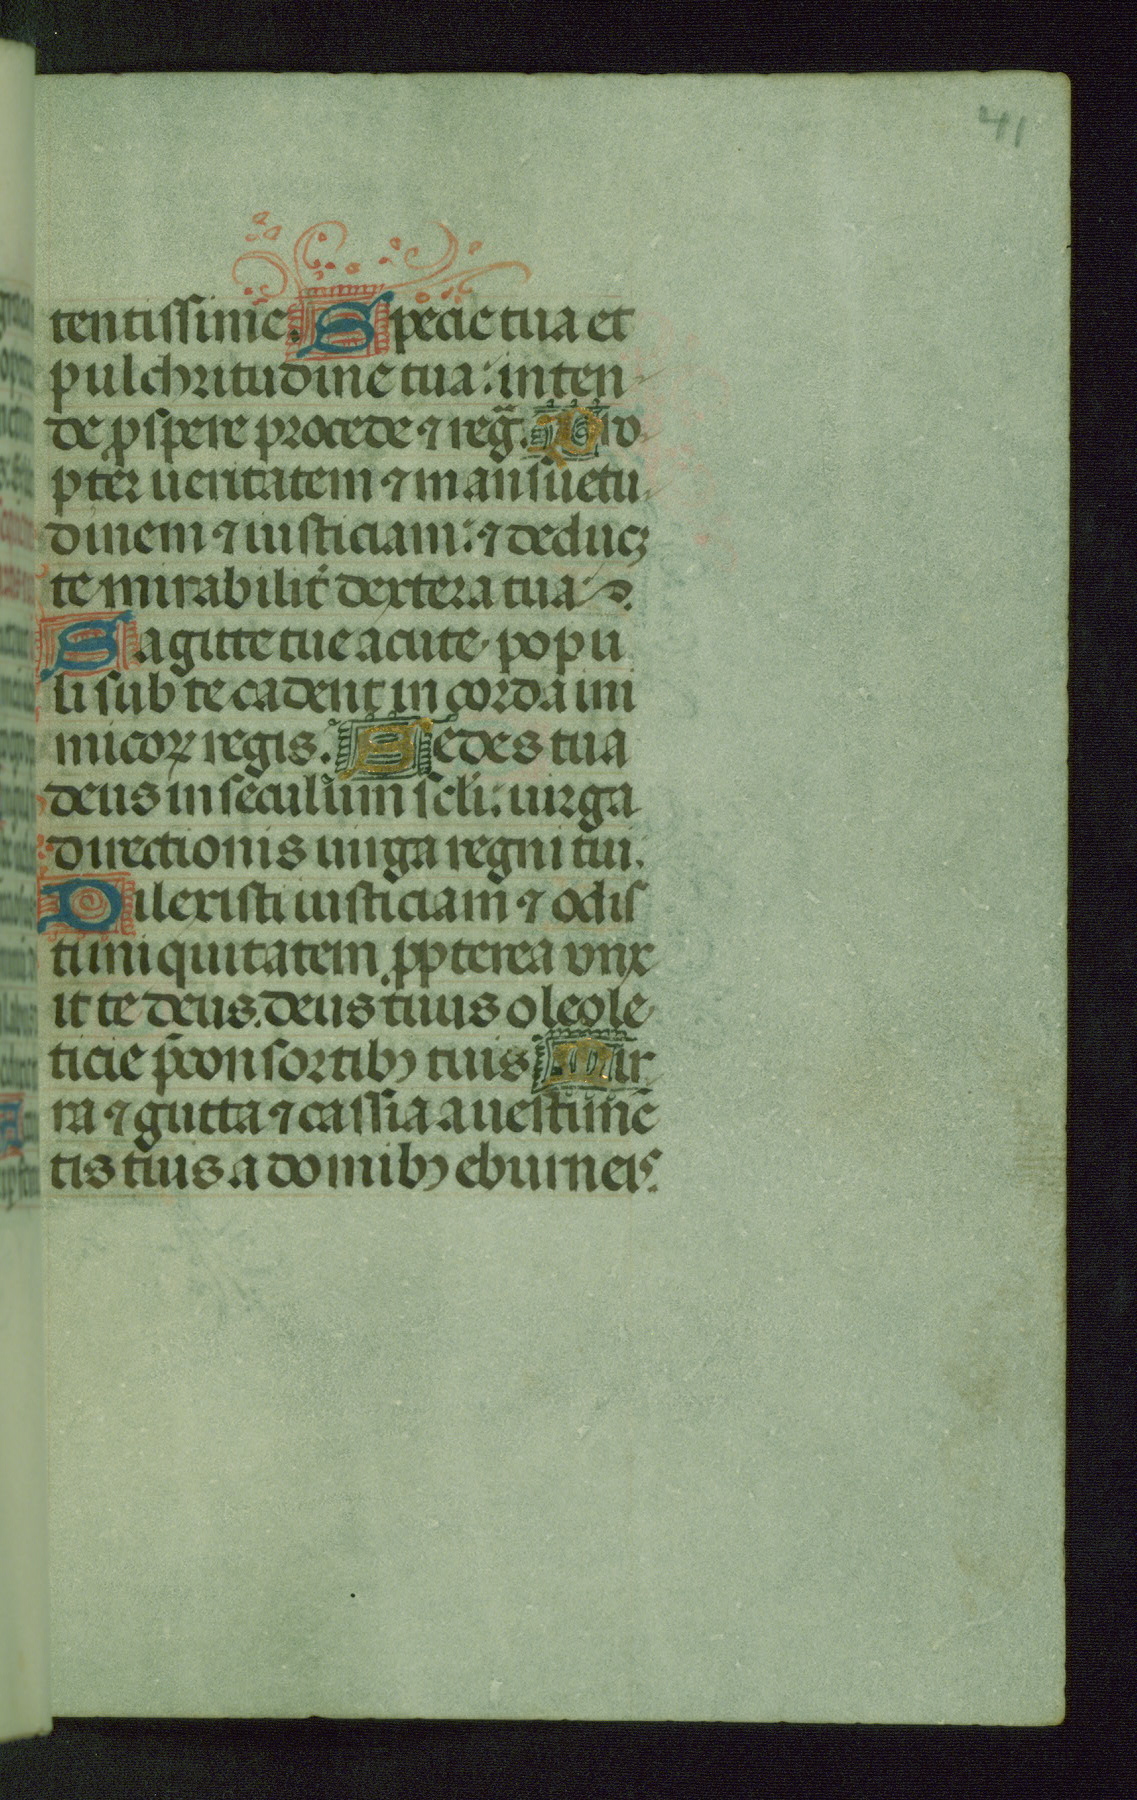 41
tentissime. Specie tua et
pulchritudine tua: inten
de ꝓspere procede ⁊ regᷓ. Pro
pter ueritatem ⁊ mansuetu
dinem ⁊ iusticiam: ⁊ deducꝫ
te mirabilit᷑ dextera tua
Sagitte tue acute popu
li sub te cadent in corda ini
micoꝝ regis. Sedes tua
deus in seculum scl̃i: uirga
directionis uirga regni tui.
Dilexisti iusticiam ⁊ odis
ti iniquitatem ꝓpterea vnx
it te deus. deus tuus oleo le
ticie p̄ consortibꝯ tuis Mir
ra ⁊ gutta ⁊ cassia a uestimē
tis tuis. a domibꝯ eburneis.